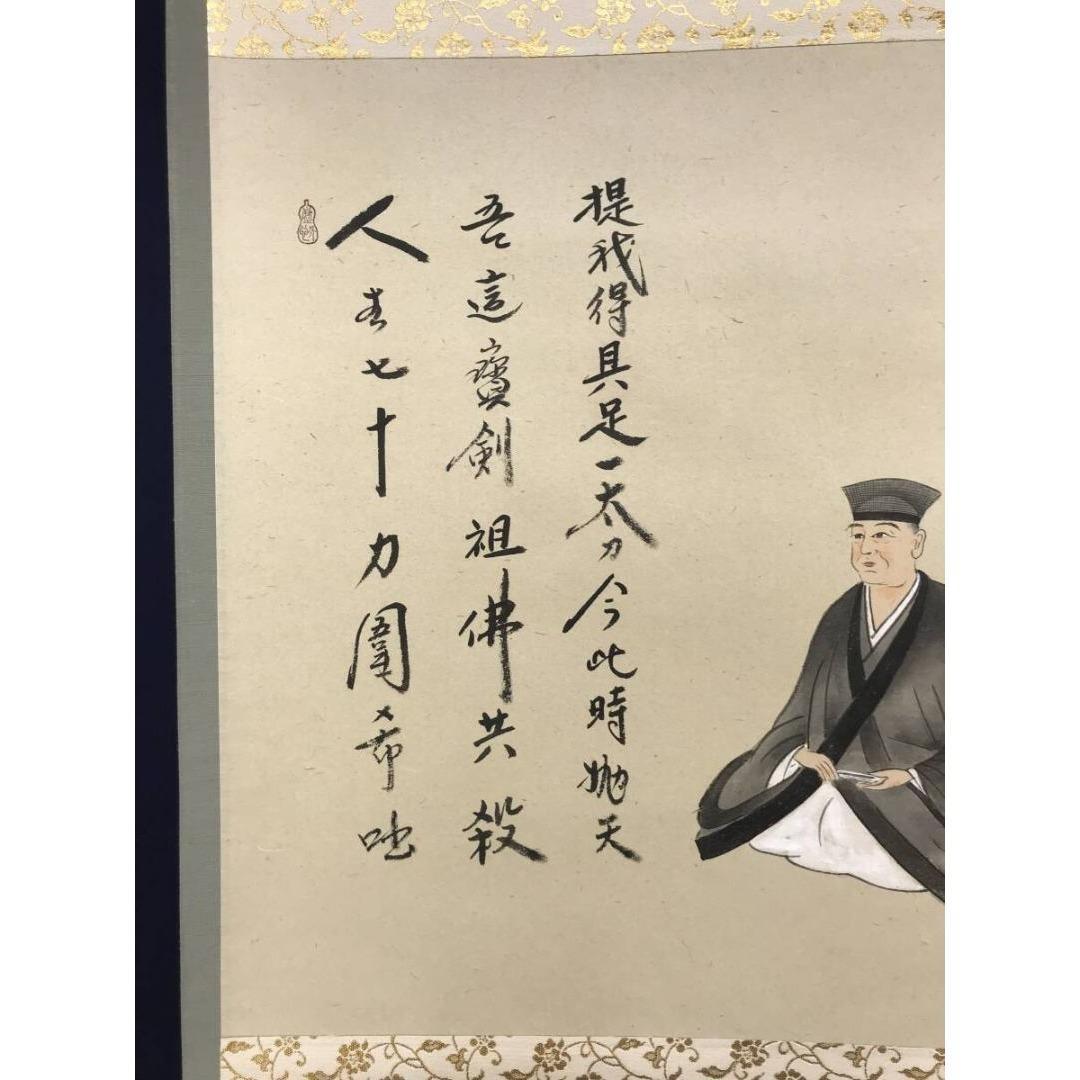 人生七十力圍希咄
吾這寳剣祖佛共殺
提我得具足一太刀今此時抛天